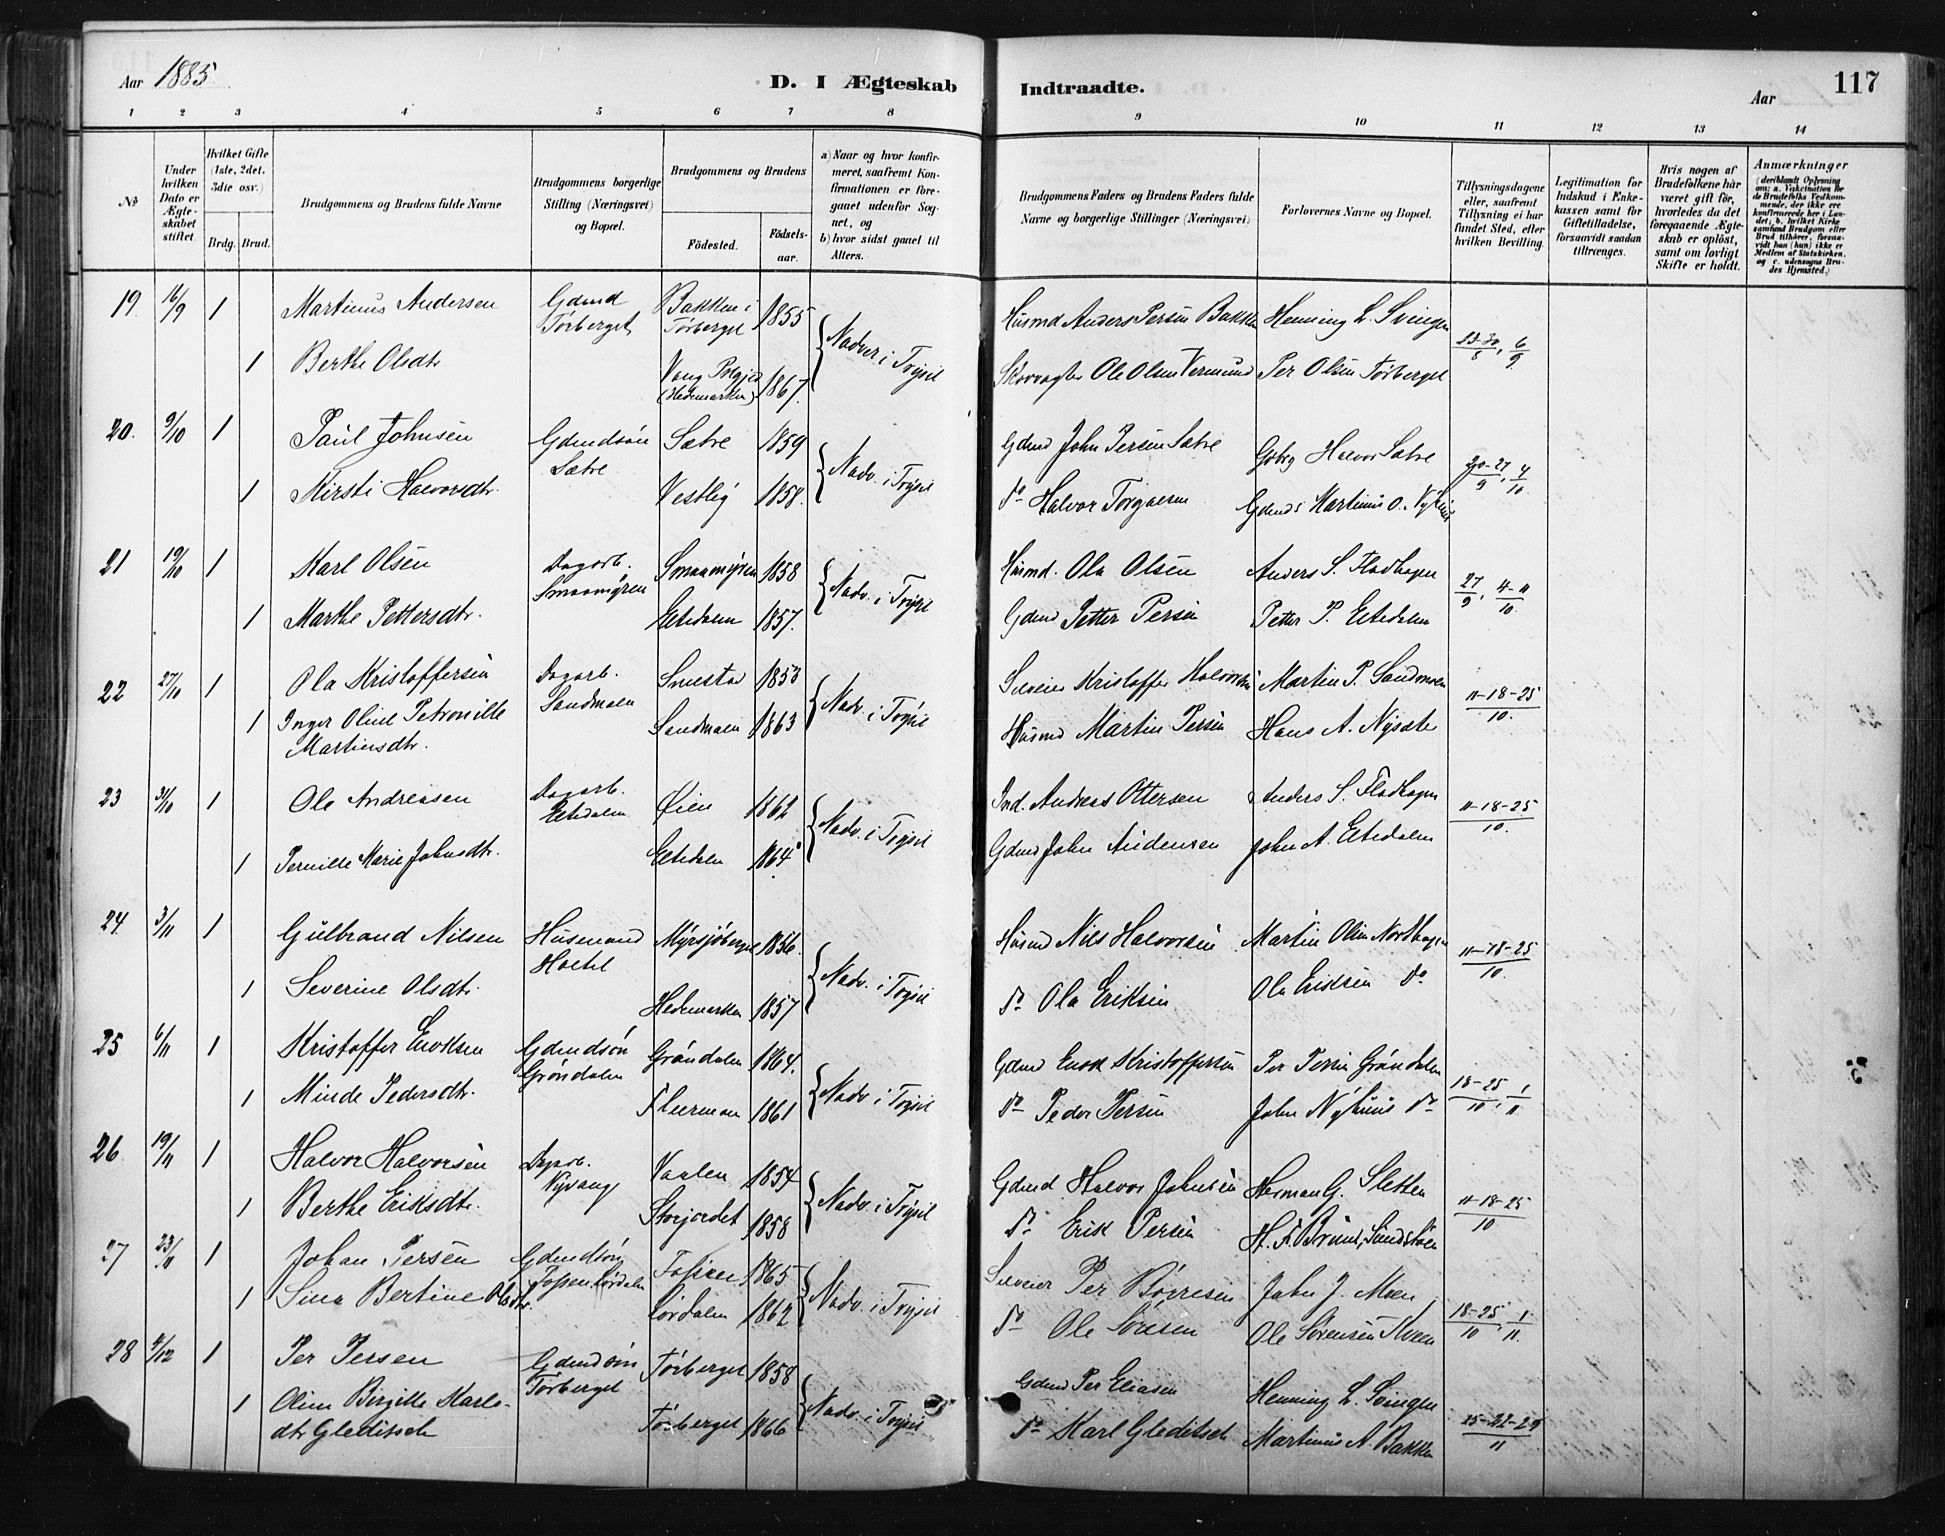 Aar 1885.
D. I Ægteskab Indtraadte.
117
Aar
1 2 3 4 5 6 7 8 9 10 11 12 13 14
No
Under hvilken Dato er Ægteskabet stiftet.
Hvilket Gifte (1ste, 2det, 3die osv.)
Brdg. Brud.
Brudgommens og Brudens fulde Navne
Brudgommens borgerlige Stilling (Næringsvei) og Bopæl.
Brudgommens og Brudens
Fødested. Fødselsaar.
a) Naar og hvor konfirmeret, saafremt Konfirmationen er foregaaet udenfor Sognet, og
b) hvor sidst gaaet til Alters.
Brudgommens Faders og Brudens Faders fulde Navne og borgerlige Stillinger (Næringsvei)
Forlovernes Navne og Bopæl.
Tillysningsdagene eller, saafremt Tillysning ei har fundet Sted, efter hvilken Bevilling.
Legitimation for Indskud i Enkekassen samt for Giftetilladelse, forsaavidt saadan tiltrænges.
Hvis nogen af Brudefolkene har været gift før, hvorledes da det foregaaende Ægteskab er opløst, samt om lovligt Skifte er holdt.
Anmærkninger (deriblandt Oplysning om: a. Vakcination for de Brudefolks Vedkommende, der ikke ere konfirmerede her i Landet; b. hvilket Kirkesamfund Brudgom eller Brud tilhører, forsaavidt han (hun) ikke er Medlem af Statskirken, og c. udensogns Brudes Hjemsted.)
19. 16/9 1 Martinus Andersen Gdmd Törberget Bakken i Törberget 1855 Nadver i Trysil Husmd Anders Persen Bakken Henning L. Svingen 23-30/8, 6/9
1 Berthe Olsdtr Vang (Hedemarken) 1867. Skovvogter Ole Olsen Vermund Per Olsen Törberget
20. 9/10 1 Paul Johnsen Gdmdsön Sætre Sætre 1859 Nadv. i Trysil Gdmd John Persen Sætre Gbrg Halvor Sætre 20-27/9, 4/10
1 Kirsti Halvorsdtr. Vestby 1858. do Halvor Torgalsen Gdmds Martinus O. Nyhuus
21 19/10 1 Karl Olsen Dagarb. Smaamyren Smaamyren 1858 Nadv. i Trysil Husmd. Ola Olsen Anders S. Flodhagen 27/9, 4-11/10
1 Marthe Pettersdtr. Eltdalen 1857. Gdmd Petter Persen Petter P. Eltedalen
22 27/10 1 Ola Kristoffersen Dagarb. Sandmoen Smestad 1853 Nadv. i Trysil Selveier Kristoffer Halvorsen Martin P. Sandmoen 11-18-25/10.
1 Inger Oline Petronille Martinsdtr. Sandmoen 1863 Husmd Martin Persen Hans A. Nysæter
23 31/10 1 Ole Andreasen Dagarb. Eltedalen Öien 1862 Nadv. i Trysil Ind. Andreas Ottersen Anders S. Flodhagen 11-18-25/10.
1 Pernille Marie Johnsdtr. Eltedalen 1864 Gdmd John Andersen John A. Eltedalen
24. 3/11 1 Gulbrand Nilsen Husmand Myrsjöberget 1856. Nadv. i Trysil Husmd Nils Halvorsen Martin Olsen Nordhagen 11-18-25/10.
1 Severine Olsdtr. Hedemarken 1857 do Ola Eriksen Ola Eriksen do
25 6/11 1 Kristoffer Enoksen Gdmdsön Gröndalen Gröndalen 1864. Nadv. i Trysil Gdmd Enok Kristoffersen Per Persen Gröndalen 18-25/10, 1/11
1 Minde Pedersdtr. Flermoen 1861 do Peder Persen John Nyhuus do
26 19/11 1 Halvor Halvorsen Dagarb. Nyvang Vaalen 1854 Nadv. i Trysil Gdmd Halvor Johnsen Herman G. Sletten 11-18-25/10
1 Berthe Eriksdtr. Storjordet 1858 do Erik Persen
27 23/11 1 Johan Persen Gdmdsön Fossen 1865 Nadv. i Trysil Selveier Per Börresen John J. Moen 18-25/10, 1/11.
1 Sina Bertine Olsdtr. Lördalen 1862 do Ole Ole Sörensen Kveen
28 4/12 1 Per Persen Gdmdsön Törberget Törberget 1858 Nadv. i Trysil Gdmd Per Eliasen Henning L. Svingen 15-22-29/11
1 Oline Birgitte Karlsdtr Gleditsch Törberget 1866 do Karl Gleditsch Martinus A. Bakken